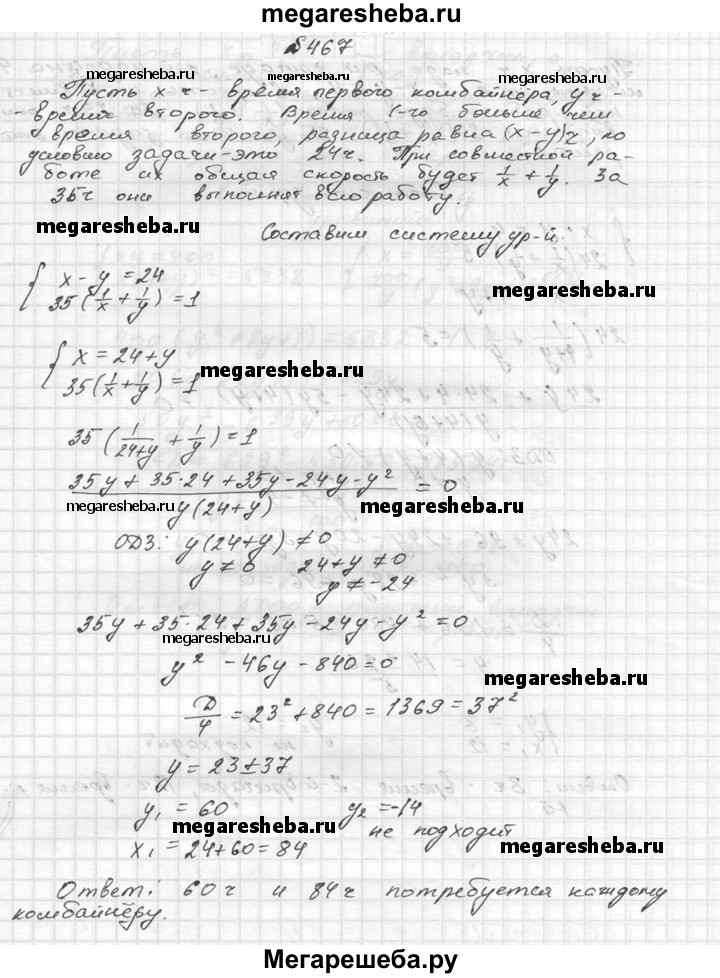 megaresheba.ru
№467
megaresheba.ru megaresheba.ru
Пусть x ч - время первого комбайнёра, y ч -
- время второго. Время 1-го больше чем
время второго, разница равна (x-y)ч, по
условию задачи - это 24ч. При совместной ра-
боте их общая скорость будет 1/x + 1/y. За
35ч они выполнят всю работу.
megaresheba.ru
Составим систему ур-й:
{ x - y = 24
35(1/x + 1/y) = 1
megaresheba.ru
{ x = 24 + y
35(1/x + 1/y) = 1
megaresheba.ru
35(1/(24+y) + 1/y) = 1
(35y + 35·24 + 35y - 24y - y²)/(y(24+y)) = 0
megaresheba.ru megaresheba.ru
ОДЗ: y(24+y) ≠ 0
y ≠ 0 24+y ≠ 0
y ≠ -24
35y + 35·24 + 35y - 24y - y² = 0
megaresheba.ru
y² - 46y - 840 = 0
megaresheba.ru
D/4 = 23² + 840 = 1369 = 37²
y = 23 ± 37
y₁ = 60 y₂ = -14
megaresheba.ru не подходит
x₁ = 24 + 60 = 84
megaresheba.ru
Ответ: 60ч и 84ч потребуется каждому
комбайнёру.
Мегарешеба.ру